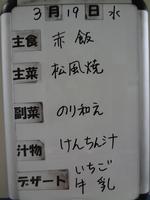 3月19日 水
主食 赤飯
主菜 松風焼
副菜 のり和え
汁物 けんちん汁
デザート いちご
牛乳